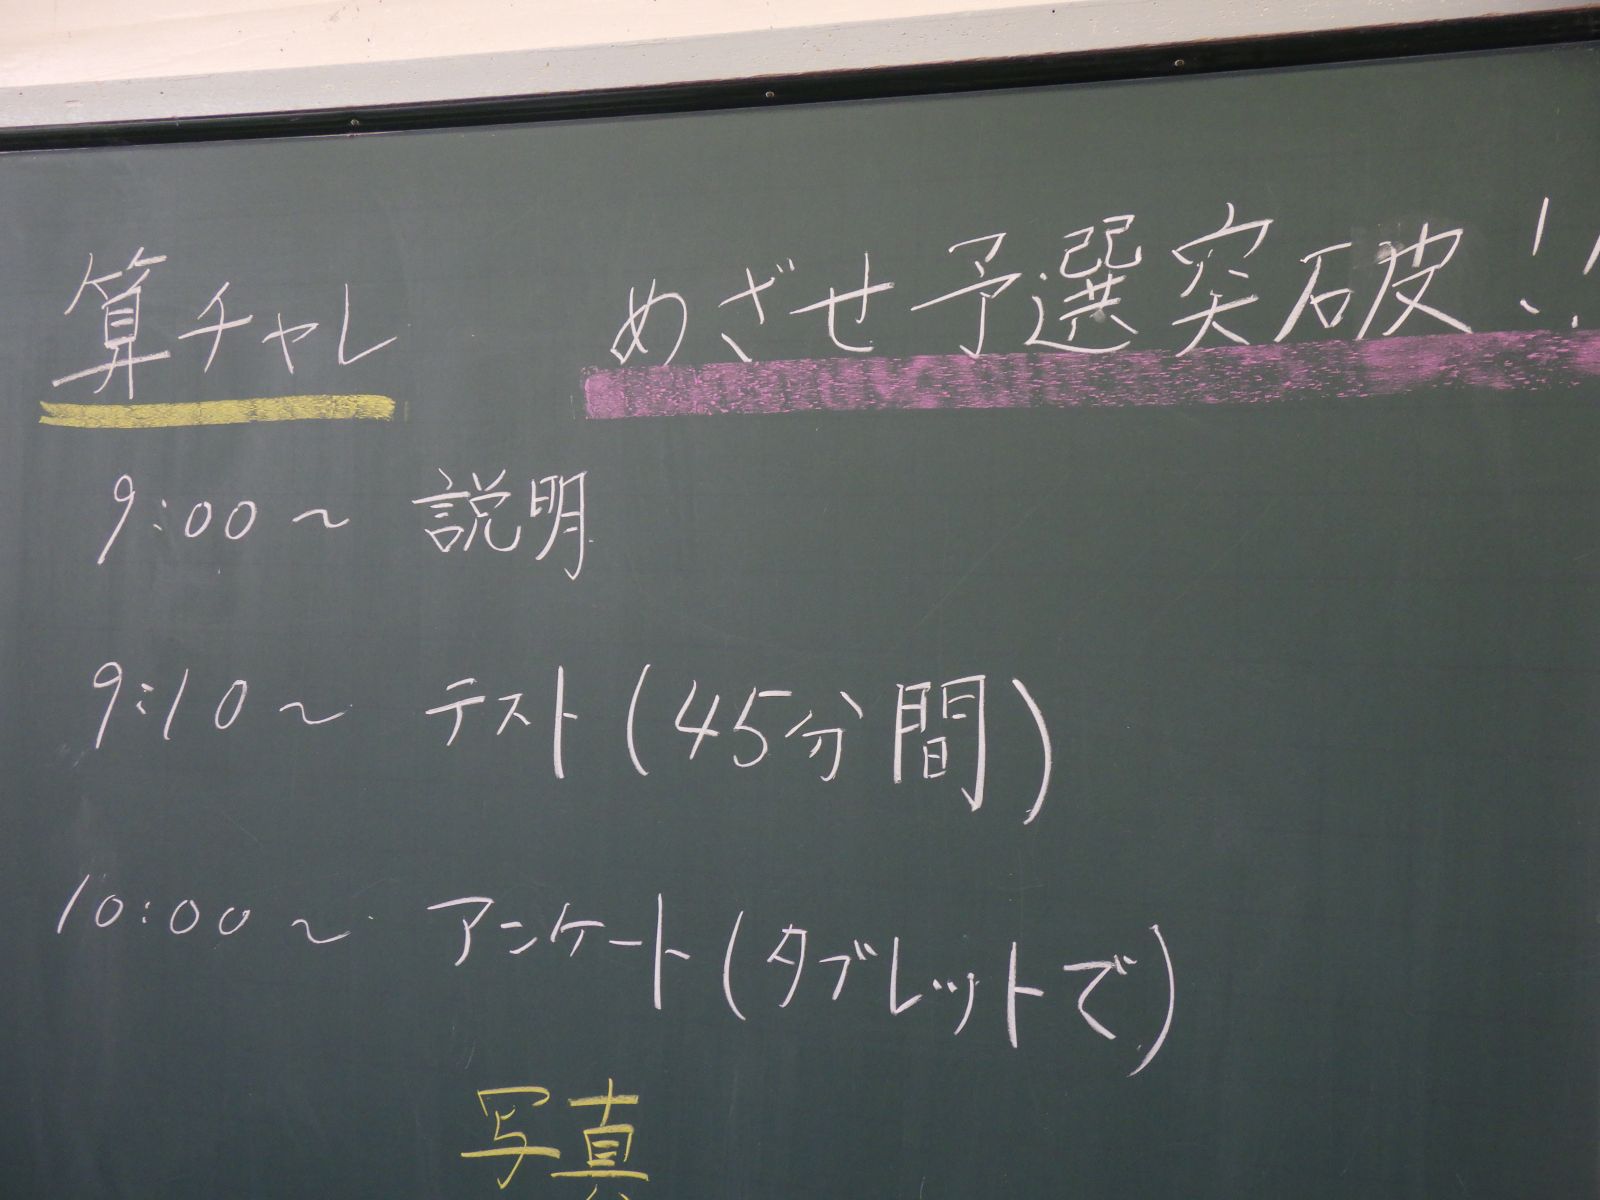 算チャレ めざせ予選突破!!
9:00~ 説明
9:10~ テスト(45分間)
10:00~ アンケート(タブレットで)
写真